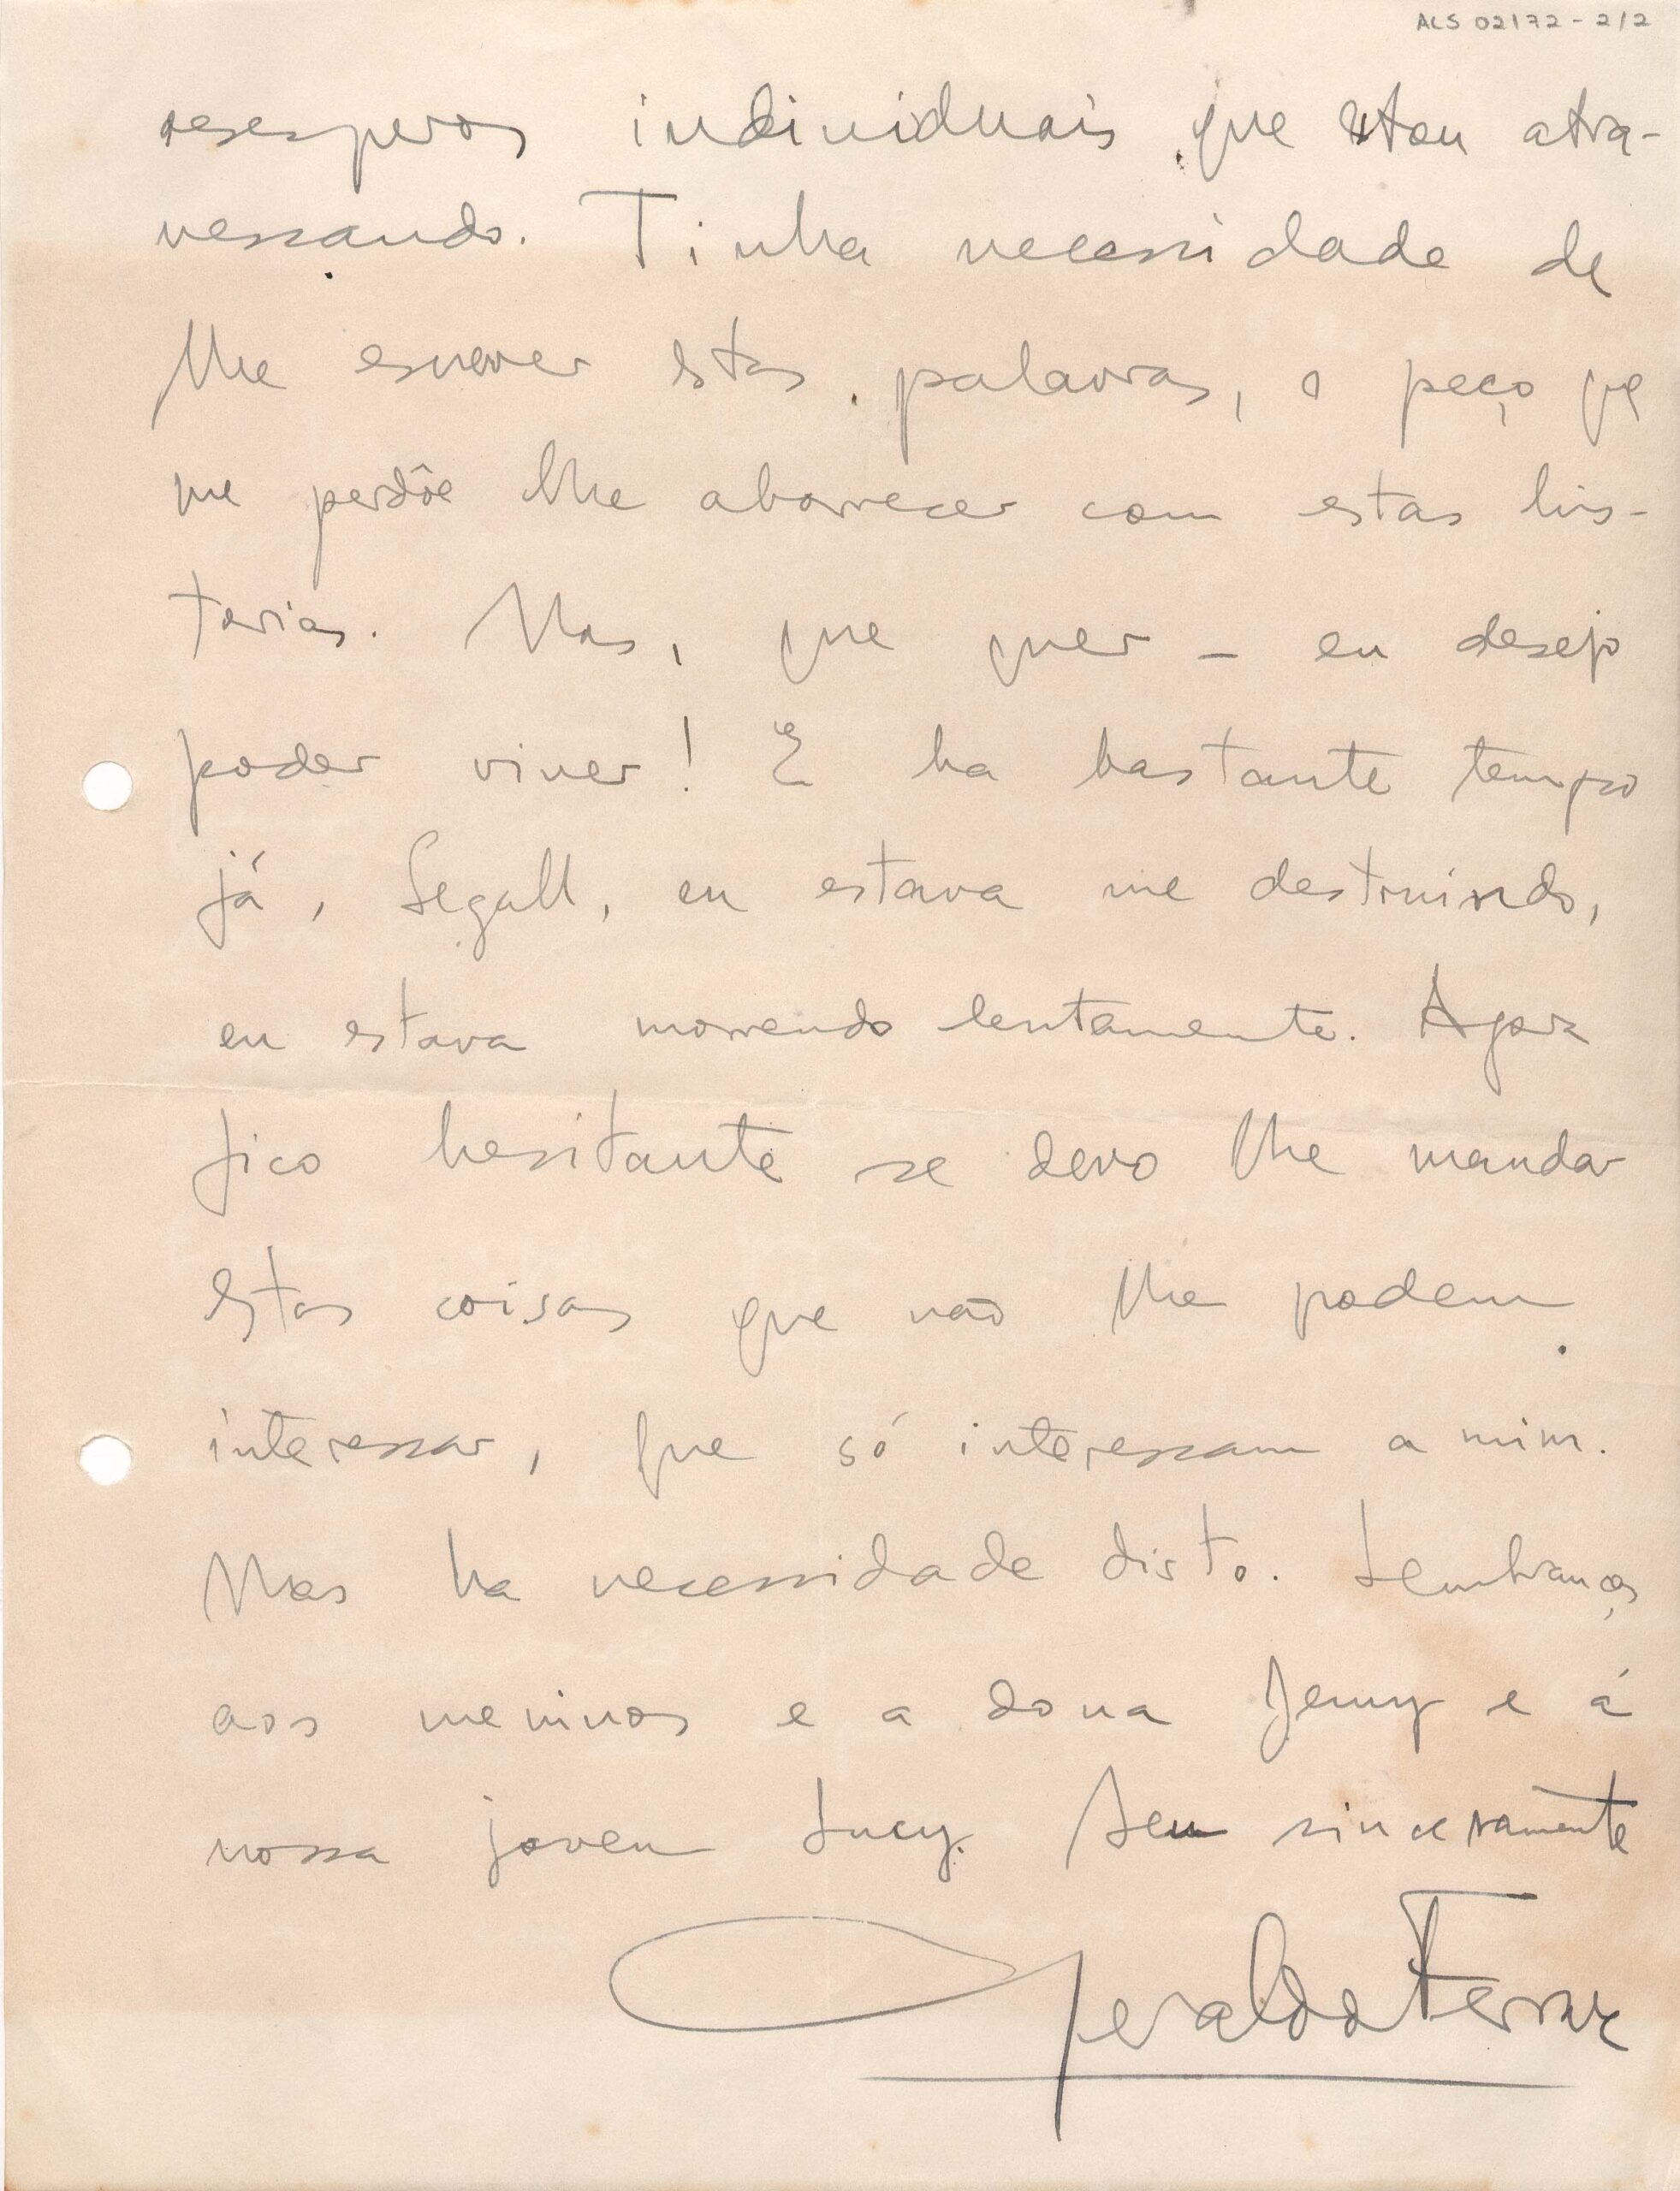 ALS 02172-2/2
desesperos individuais que estou atra-
vessando. Tinha necessidade de
lhe escrever estas palavras, e peço que
me perdôe lhe aborrecer com estas his-
torias. Mas, que quer - eu desejo
poder viver! E ha bastante tempo
já, Segall, eu estava me destruindo,
eu estava morrendo lentamente. Agora
fico hesitante se devo lhe mandar
estas coisas que não lhe podem
interessar, que só interessam a mim.
Mas ha necessidade disto. Lembranças
aos meninos e a dona Jenny e á
nossa joven Lucy. Seu sinceramente
Geraldo Ferraz